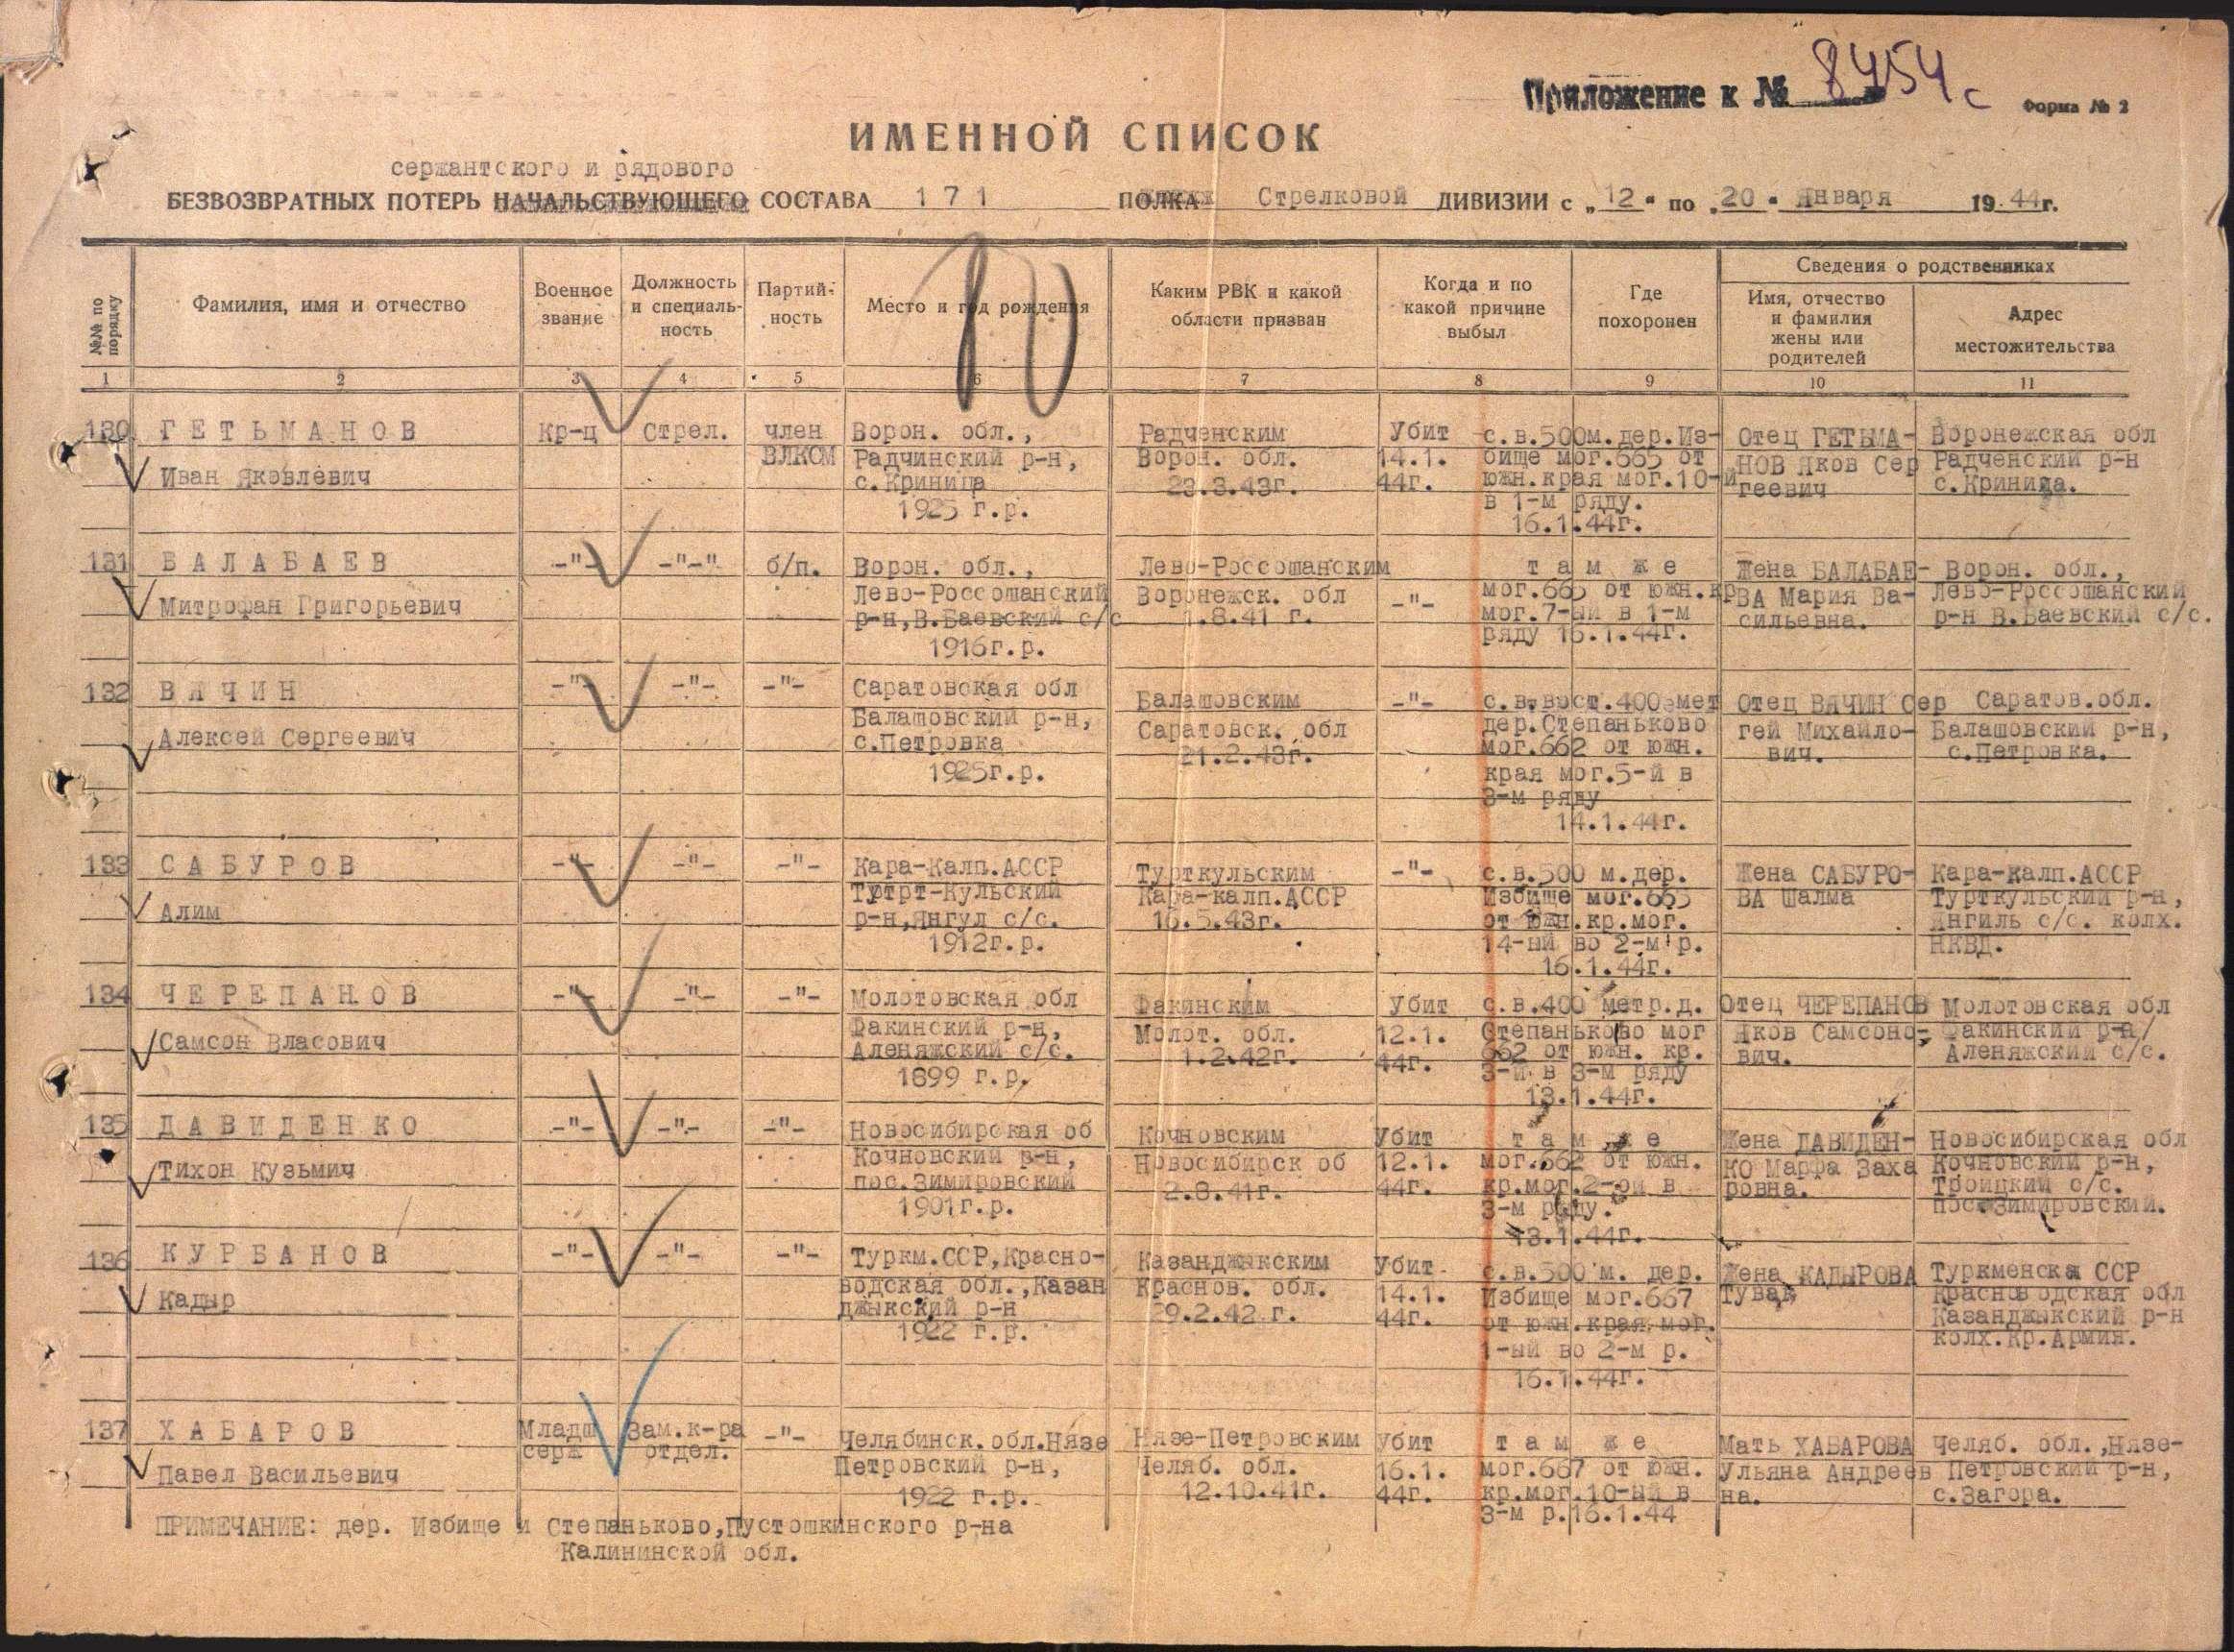 Приложение к № 8454с
Форма № 2
ИМЕННОЙ СПИСОК
сержантского и рядового
БЕЗВОЗВРАТНЫХ ПОТЕРЬ НАЧАЛЬСТВУЮЩЕГО СОСТАВА 171 ПОЛКА Стрелковой ДИВИЗИИ с „12" по „20" Января 1944г.
№№ по порядку
Фамилия, имя и отчество
Военное звание
Должность и специаль-ность
Партий-ность
Место и год рождения
10
Каким РВК и какой области призван
Когда и по какой причине выбыл
Где похоронен
Сведения о родственниках
Имя, отчество и фамилия жены или родителей
Адрес местожительства
1 2 3 4 5 6 7 8 9 10 11
130 ГЕТЬМАНОВ
Иван Яковлевич
Кр-ц
Стрел.
член
ВЛКОМ
Ворон. обл.,
Радчинский р-н,
с.Криница
1925 г.р.
Радченским
Ворон. обл.
23.3.43г.
Убит
14.1.
44г.
с.в.500м.дер.Из-
бище мог.665 от
южн.края мог.10-й
в 1-м ряду.
16.1.44г.
Отец ГЕТЬМА-
НОВ Яков Сер
геевич
Воронежская обл
Радченский р-н
с.Криница.
131 БАЛАБАЕВ
Митрофан Григорьевич
-"-
-"-"
б/п.
Ворон. обл.,
Лево-Россошанский
р-н,В.Баевский с/с
1916г.р.
Лево-Россошанским
Воронежск. обл
1.8.41 г.
-"-
там же
мог.665 от южн.кр
мог.7-ый в 1-м
ряду 16.1.44г.
Жена БАЛАБАЕ-
ВА Мария Ва-
сильевна.
Ворон. обл.,
Лево-Россошанский
р-н В.Баевский с/с.
132 ВЯЧИН
Алексей Сергеевич
-"-
-"-
-"-
Саратовская обл
Балашовский р-н,
с.Петровка
1925г.р.
Балашовским
Саратовск. обл
21.2.43г.
-"-
с.в.вост.400 мет
дер.Степаньково
мог.662 от южн.
края мог.5-й в
3-м ряду
14.1.44г.
Отец ВЯЧИН Сер
гей Михайло-
вич.
Саратов.обл.
Балашовский р-н,
с.Петровка.
133 САБУРОВ
Алим
-"-
-"-
-"-
Кара-Калп.АССР
Тртрт-Кульский
р-н,Янгул с/с.
1912г.р.
Турткульским
Кара-калп.АССР
16.5.43г.
-"-
с.в.500 м.дер.
Избище мог.665
от южн.кр.мог.
14-ый во 2-м р.
16.1.44г.
Жена САБУРО-
ВА Шалма
Кара-калп.АССР
Турткульский р-н,
Янгиль с/с. колх.
НКВД.
134 ЧЕРЕПАНОВ
Самсон Власович
-"-
-"-
-"-
Молотовская обл
Факинский р-н,
Аленяжский с/с.
1899 г.р.
Факинским
Молот. обл.
1.2.42г.
Убит
12.1.
44г.
с.в.400 метр.д.
Степаньково мог
662 от южн. кр.
3-й в 3-м ряду
13.1.44г.
Отец ЧЕРЕПАНОВ
Яков Самсоно-
вич.
Молотовская обл
Факинский р-а/
Аленяжский с/с.
135 ДАВИДЕНКО
Тихон Кузьмич
-"-
-"-
-"-
Новосибирская об
Кочновский р-н,
пос.Зимировский
1901г.р.
Кочновским
Новосибирск об
2.8.41г.
Убит
12.1.
44г.
там же
мог.662 от южн.
кр.мог.2-ой в
3-м ряду.
13.1.44г.
Жена ДАВИДЕН-
КО Марфа Заха
ровна.
Новосибирская обл
Кочновский р-н,
Троицкий с/с.
пос.Зимировский.
136 КУРБАНОВ
Кадыр
-"-
-"-
-"-
Туркм.ССР,Красно-
водская обл.,Казан
джыкский р-н
1922 г.р.
Казанджыкским
Краснов. обл.
29.2.42 г.
Убит
14.1.
44г.
с.в.500 м. дер.
Избище мог.667
от южн.края мог.
1-ый во 2-м р.
16.1.44г.
Жена КАДЫРОВА
Тувак
Туркменска ССР
Красноводская обл
Казанджыкский р-н
колх.Кр.Армия.
137 ХАБАРОВ
Павел Васильевич
Младш
серж
Зам.к-ра
отдел.
-"-
Челябинск.обл.Нязе
Петровский р-н,
1922 г.р.
Нязе-Петровским
Челяб. обл.
12.10.41г.
Убит
16.1.
44г.
там же
мог.667 от южн.
кр.мог.10-ый в
3-м р.16.1.44
Мать ХАБАРОВА
Ульяна Андреев
на.
Челяб. обл.,Нязе-
Петровский р-н,
с.Загора.
ПРИМЕЧАНИЕ: дер. Избище и Степаньково,Пустошкинского р-на
Калининской обл.